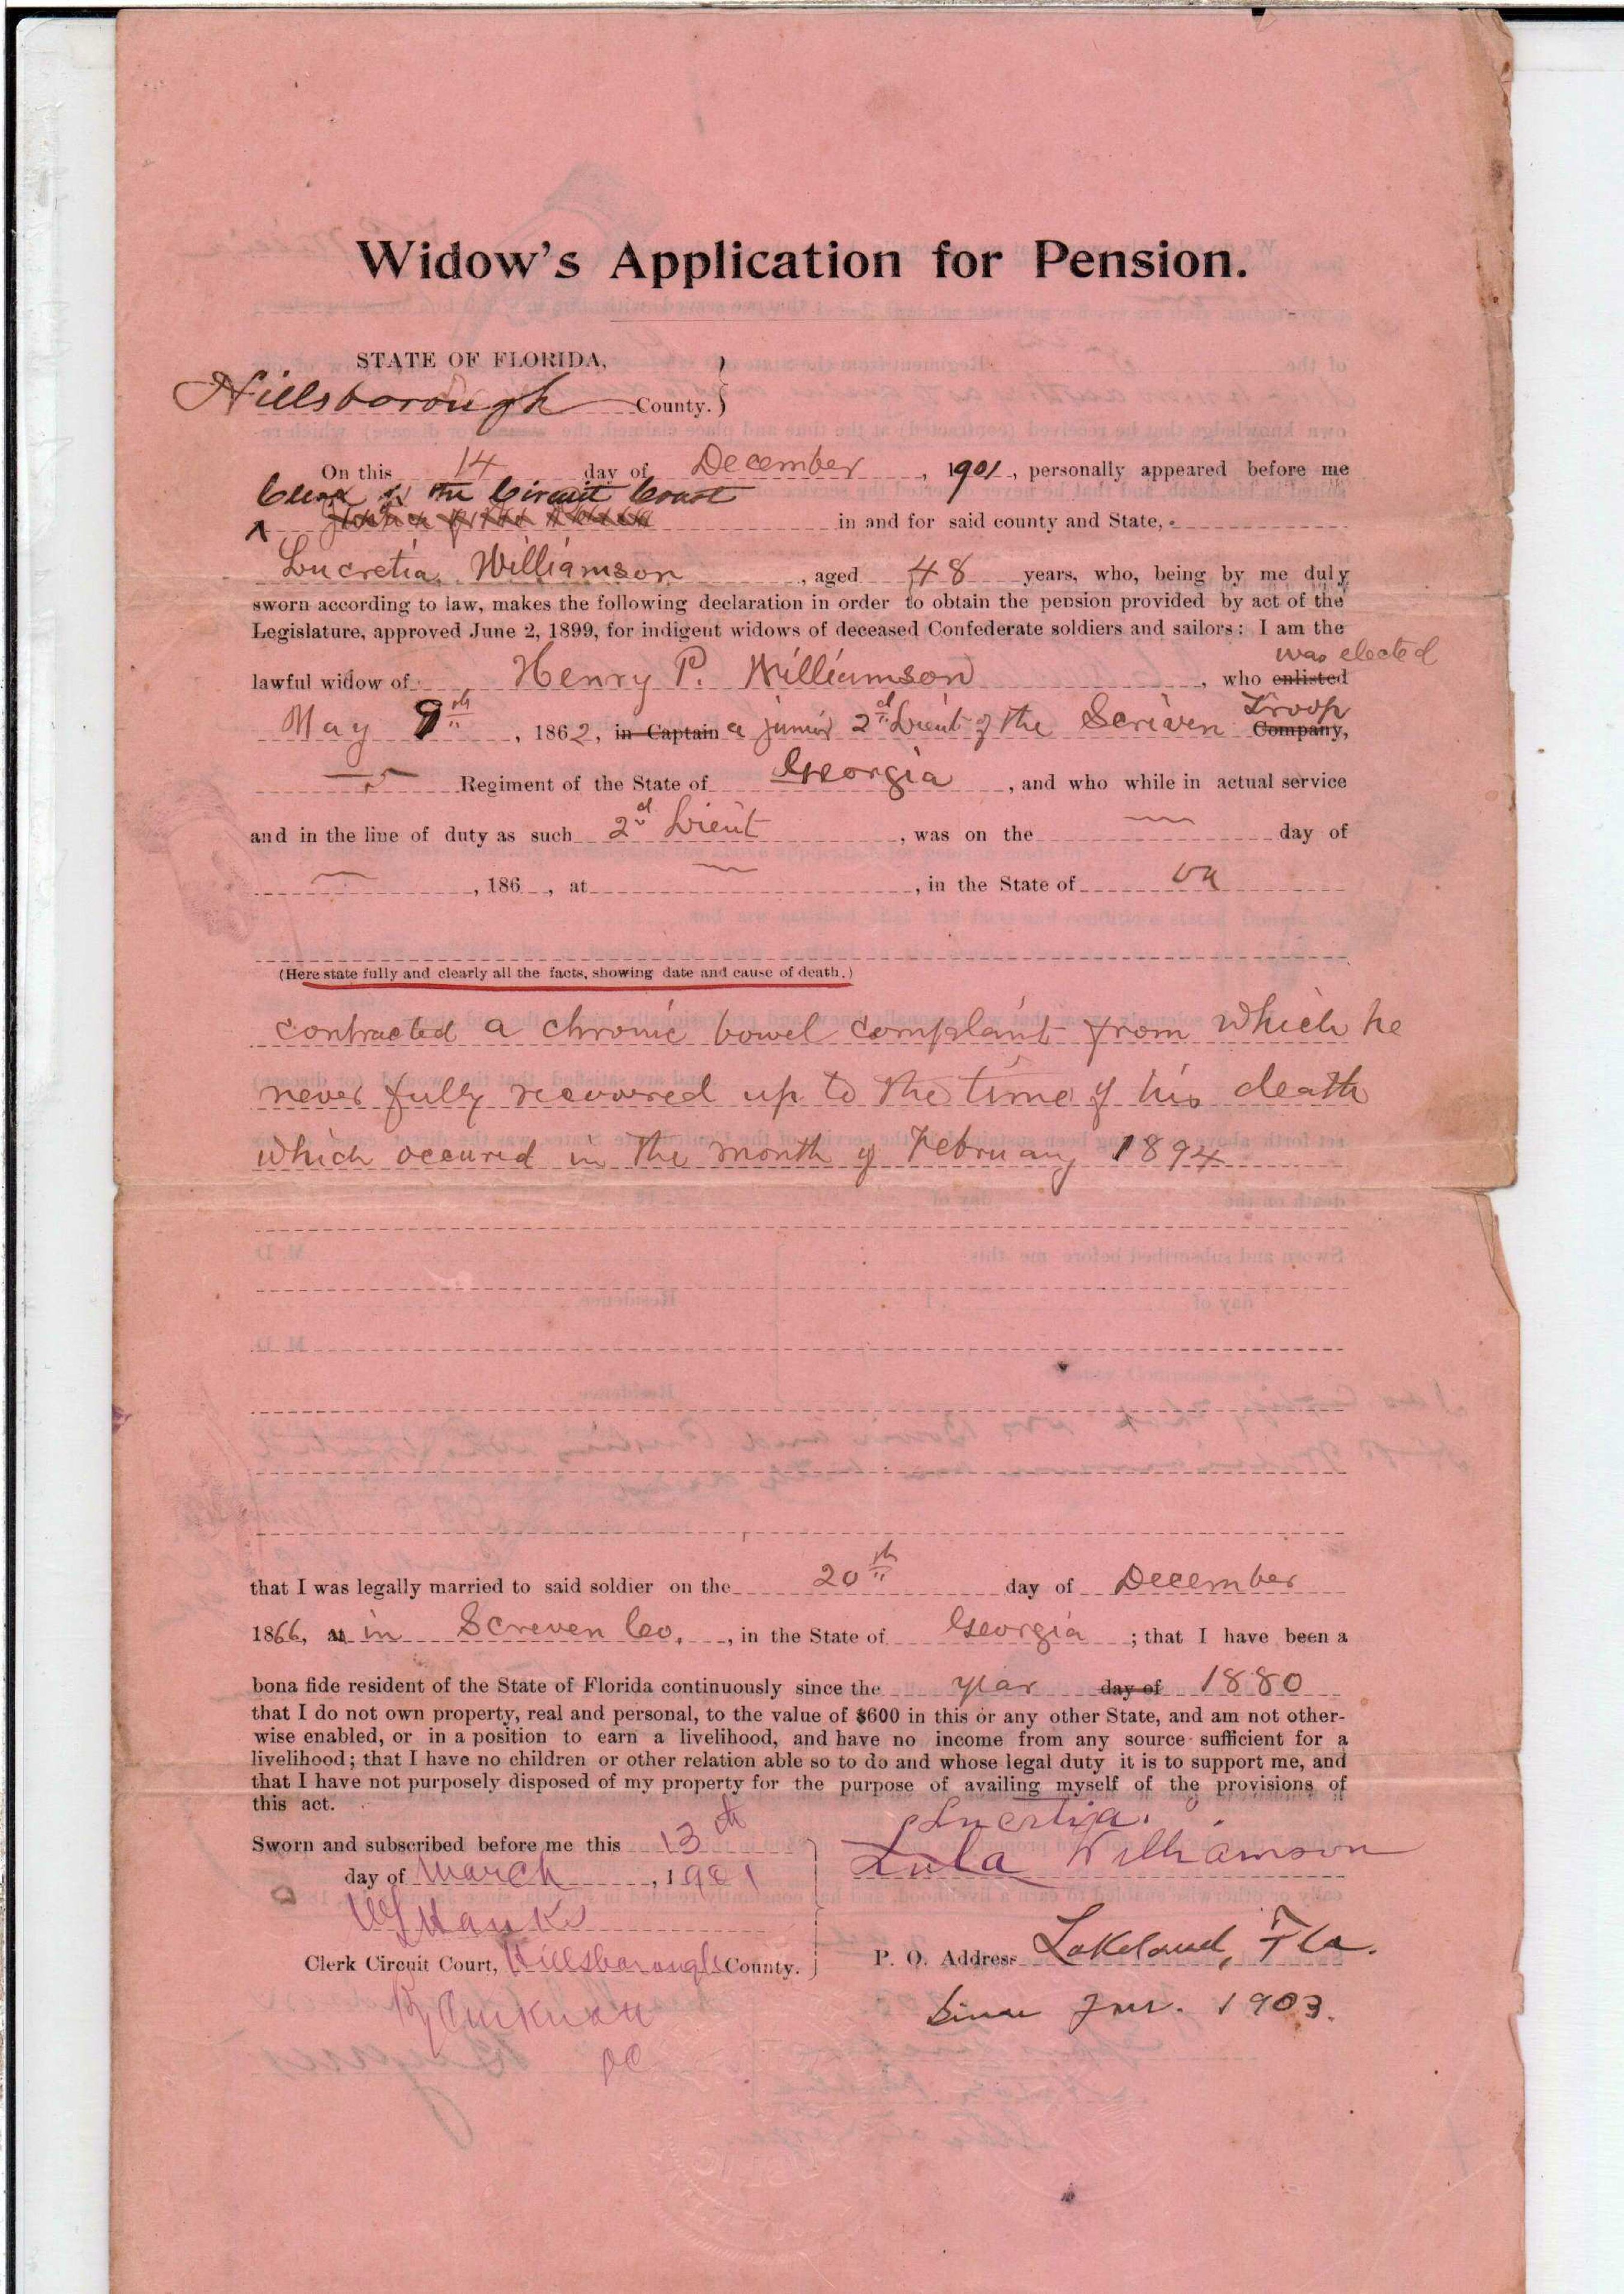 Widow's Application for Pension.
STATE OF FLORIDA,
Hillsborough County.
On this 14 day of December, 1901, personally appeared before me
Clerk of the Circuit Court
in and for said county and State,
Lucretia Williamson, aged 48 years, who, being by me duly
sworn according to law, makes the following declaration in order to obtain the pension provided by act of the
Legislature, approved June 2, 1899, for indigent widows of deceased Confederate soldiers and sailors: I am the
was elected
lawful widow of Henry P. Williamson, who enlisted
Troop
May 9th, 1862, in Captain a junior 2d Lieut of the Scriven Company,
Regiment of the State of Georgia, and who while in actual service
and in the line of duty as such 2d Lieut, was on the day of
, 186 , at , in the State of
(Here state fully and clearly all the facts, showing date and cause of death.)
contracted a chronic bowel complaint from which he
never fully recovered up to the time of his death
which occured in the month of February 1894
that I was legally married to said soldier on the 20th day of December
1866, at in Screven Co., in the State of Georgia; that I have been a
bona fide resident of the State of Florida continuously since the year day of 1880
that I do not own property, real and personal, to the value of $600 in this or any other State, and am not other-
wise enabled, or in a position to earn a livelihood, and have no income from any source sufficient for a
livelihood; that I have no children or other relation able so to do and whose legal duty it is to support me, and
that I have not purposely disposed of my property for the purpose of availing myself of the provisions of
this act.
Sworn and subscribed before me this 13th
day of March, 1901
Clerk Circuit Court, Hillsborough County.
DC
Lucretia
Lula Williamson
P. O. Address Lakeland, Fla.
Since Jan. 1903.